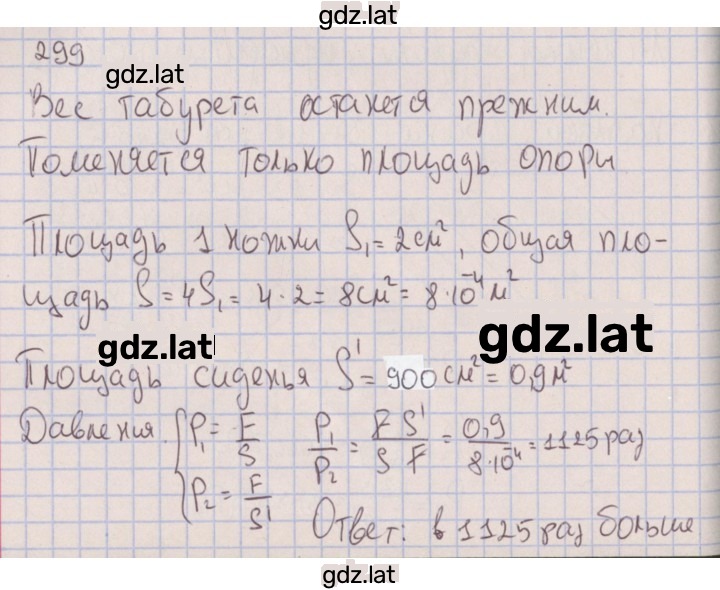 gdz.lat
299
gdz.lat
Вес табурета останется прежним.
Поменяется только площадь опоры
Площадь 1 ножки S₁ = 2см², общая пло-
щадь S = 4S₁ = 4·2 = 8см² = 8·10⁻⁴ м²
gdz.lat
gdz.lat
Площадь сиденья S' = 900 см² = 0,9м²
Давления. { P₁ = F/S P₁/P₂ = F S'/S F = 0,9/8·10⁻⁴ = 1125 раз
P₂ = F/S'
Ответ: в 1125 раз больше
gdz.lat